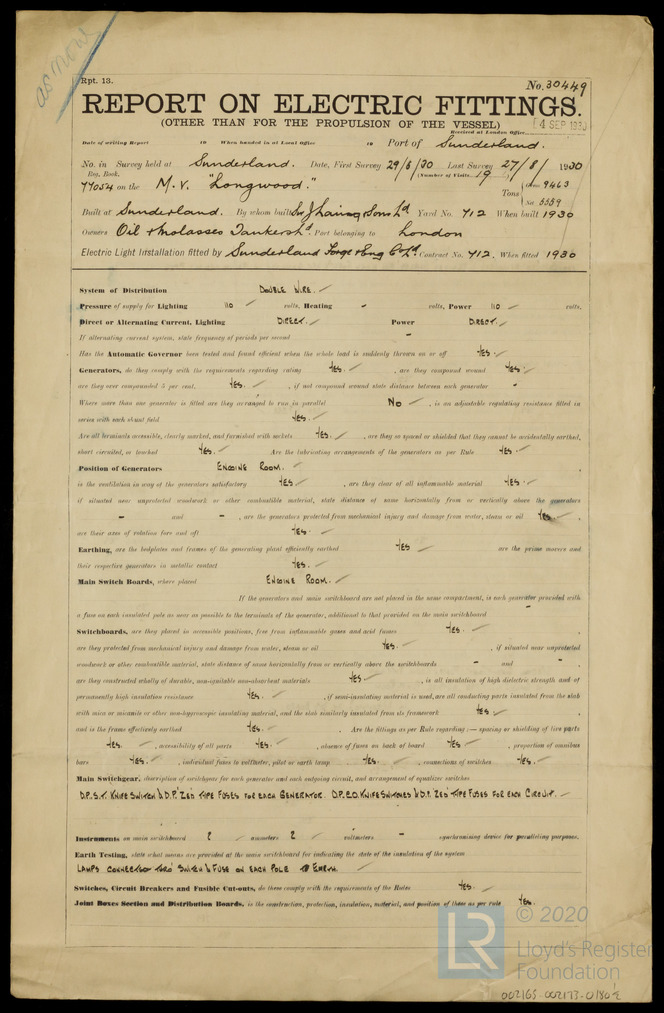 as now
Rpt. 13.
No. 30449
REPORT ON ELECTRIC FITTINGS.
(OTHER THAN FOR THE PROPULSION OF THE VESSEL)
Received at London Office
4 SEP 1930
Date of writing Report 19 When handed in at Local Office 19 Port of Sunderland.
No. in Survey held at Sunderland. Date, First Survey 29/6/30 Last Survey 27/8/1930
Reg. Book. (Number of Visits 19)
77054 on the M.V. "Longwood." Tons Gross 9463
Net 5559
Built at Sunderland. By whom built Sir J Laing & Sons Ld Yard No. 712 When built 1930
Owners Oil & Molasses Tankers Ld. Port belonging to London
Electric Light Installation fitted by Sunderland Forge & Eng Co Ld. Contract No. 712. When fitted 1930
System of Distribution DOUBLE WIRE.
Pressure of supply for Lighting 110 volts, Heating - volts, Power 110 volts,
Direct or Alternating Current, Lighting DIRECT. Power DIRECT.
If alternating current system, state frequency of periods per second -
Has the Automatic Governor been tested and found efficient when the whole load is suddenly thrown on or off YES.
Generators, do they comply with the requirements regarding rating YES. , are they compound wound YES.
are they over compounded 5 per cent. YES. , if not compound wound state distance between each generator -
Where more than one generator is fitted are they arranged to run in parallel NO , is an adjustable regulating resistance fitted in
series with each shunt field YES.
Are all terminals accessible, clearly marked, and furnished with sockets YES. , are they so spaced or shielded that they cannot be accidentally earthed,
short circuited, or touched YES. Are the lubricating arrangements of the generators as per Rule YES.
Position of Generators ENGINE ROOM.
is the ventilation in way of the generators satisfactory YES , are they clear of all inflammable material YES.
if situated near unprotected woodwork or other combustible material, state distance of same horizontally from or vertically above the generators
- and - , are the generators protected from mechanical injury and damage from water, steam or oil YES.
are their axes of rotation fore and aft YES.
Earthing, are the bedplates and frames of the generating plant efficiently earthed YES are the prime movers and
their respective generators in metallic contact YES.
Main Switch Boards, where placed ENGINE ROOM.
If the generators and main switchboard are not placed in the same compartment, is each generator provided with
a fuse on each insulated pole as near as possible to the terminals of the generator, additional to that provided on the main switchboard -
Switchboards, are they placed in accessible positions, free from inflammable gases and acid fumes YES.
are they protected from mechanical injury and damage from water, steam or oil YES. , if situated near unprotected
woodwork or other combustible material, state distance of same horizontally from or vertically above the switchboards - and -
are they constructed wholly of durable, non-ignitable non-absorbent materials YES , is all insulation of high dielectric strength and of
permanently high insulation resistance YES. , if semi-insulating material is used, are all conducting parts insulated from the slab
with mica or micanite or other non-hygroscopic insulating material, and the slab similarly insulated from its framework YES.
and is the frame effectively earthed YES. . Are the fittings as per Rule regarding:— spacing or shielding of live parts
YES. , accessibility of all parts YES. , absence of fuses on back of board YES. , proportion of omnibus
bars YES. , individual fuses to voltmeter, pilot or earth lamp YES. , connections of switches YES.
Main Switchgear, description of switchgear for each generator and each outgoing circuit, and arrangement of equalizer switches
D.P.S.T. KNIFE SWITCH & D.P. 'ZED' TYPE FUSES FOR EACH GENERATOR. D.P.C.O. KNIFE SWITCHES & D.P. 'ZED' TYPE FUSES FOR EACH CIRCUIT.
Instruments on main switchboard 2 ammeters 2 voltmeters - synchronising device for paralleling purposes.
Earth Testing, state what means are provided at the main switchboard for indicating the state of the insulation of the system
LAMPS CONNECTED THRO' SWITCH & FUSE ON EACH POLE TO EARTH.
Switches, Circuit Breakers and Fusible Cut-outs, do these comply with the requirements of the Rules YES.
Joint Boxes Section and Distribution Boards, is the construction, protection, insulation, material, and position of these as per rule YES.
LR
© 2020
Lloyd's Register
Foundation
002165-002173-0180 ½